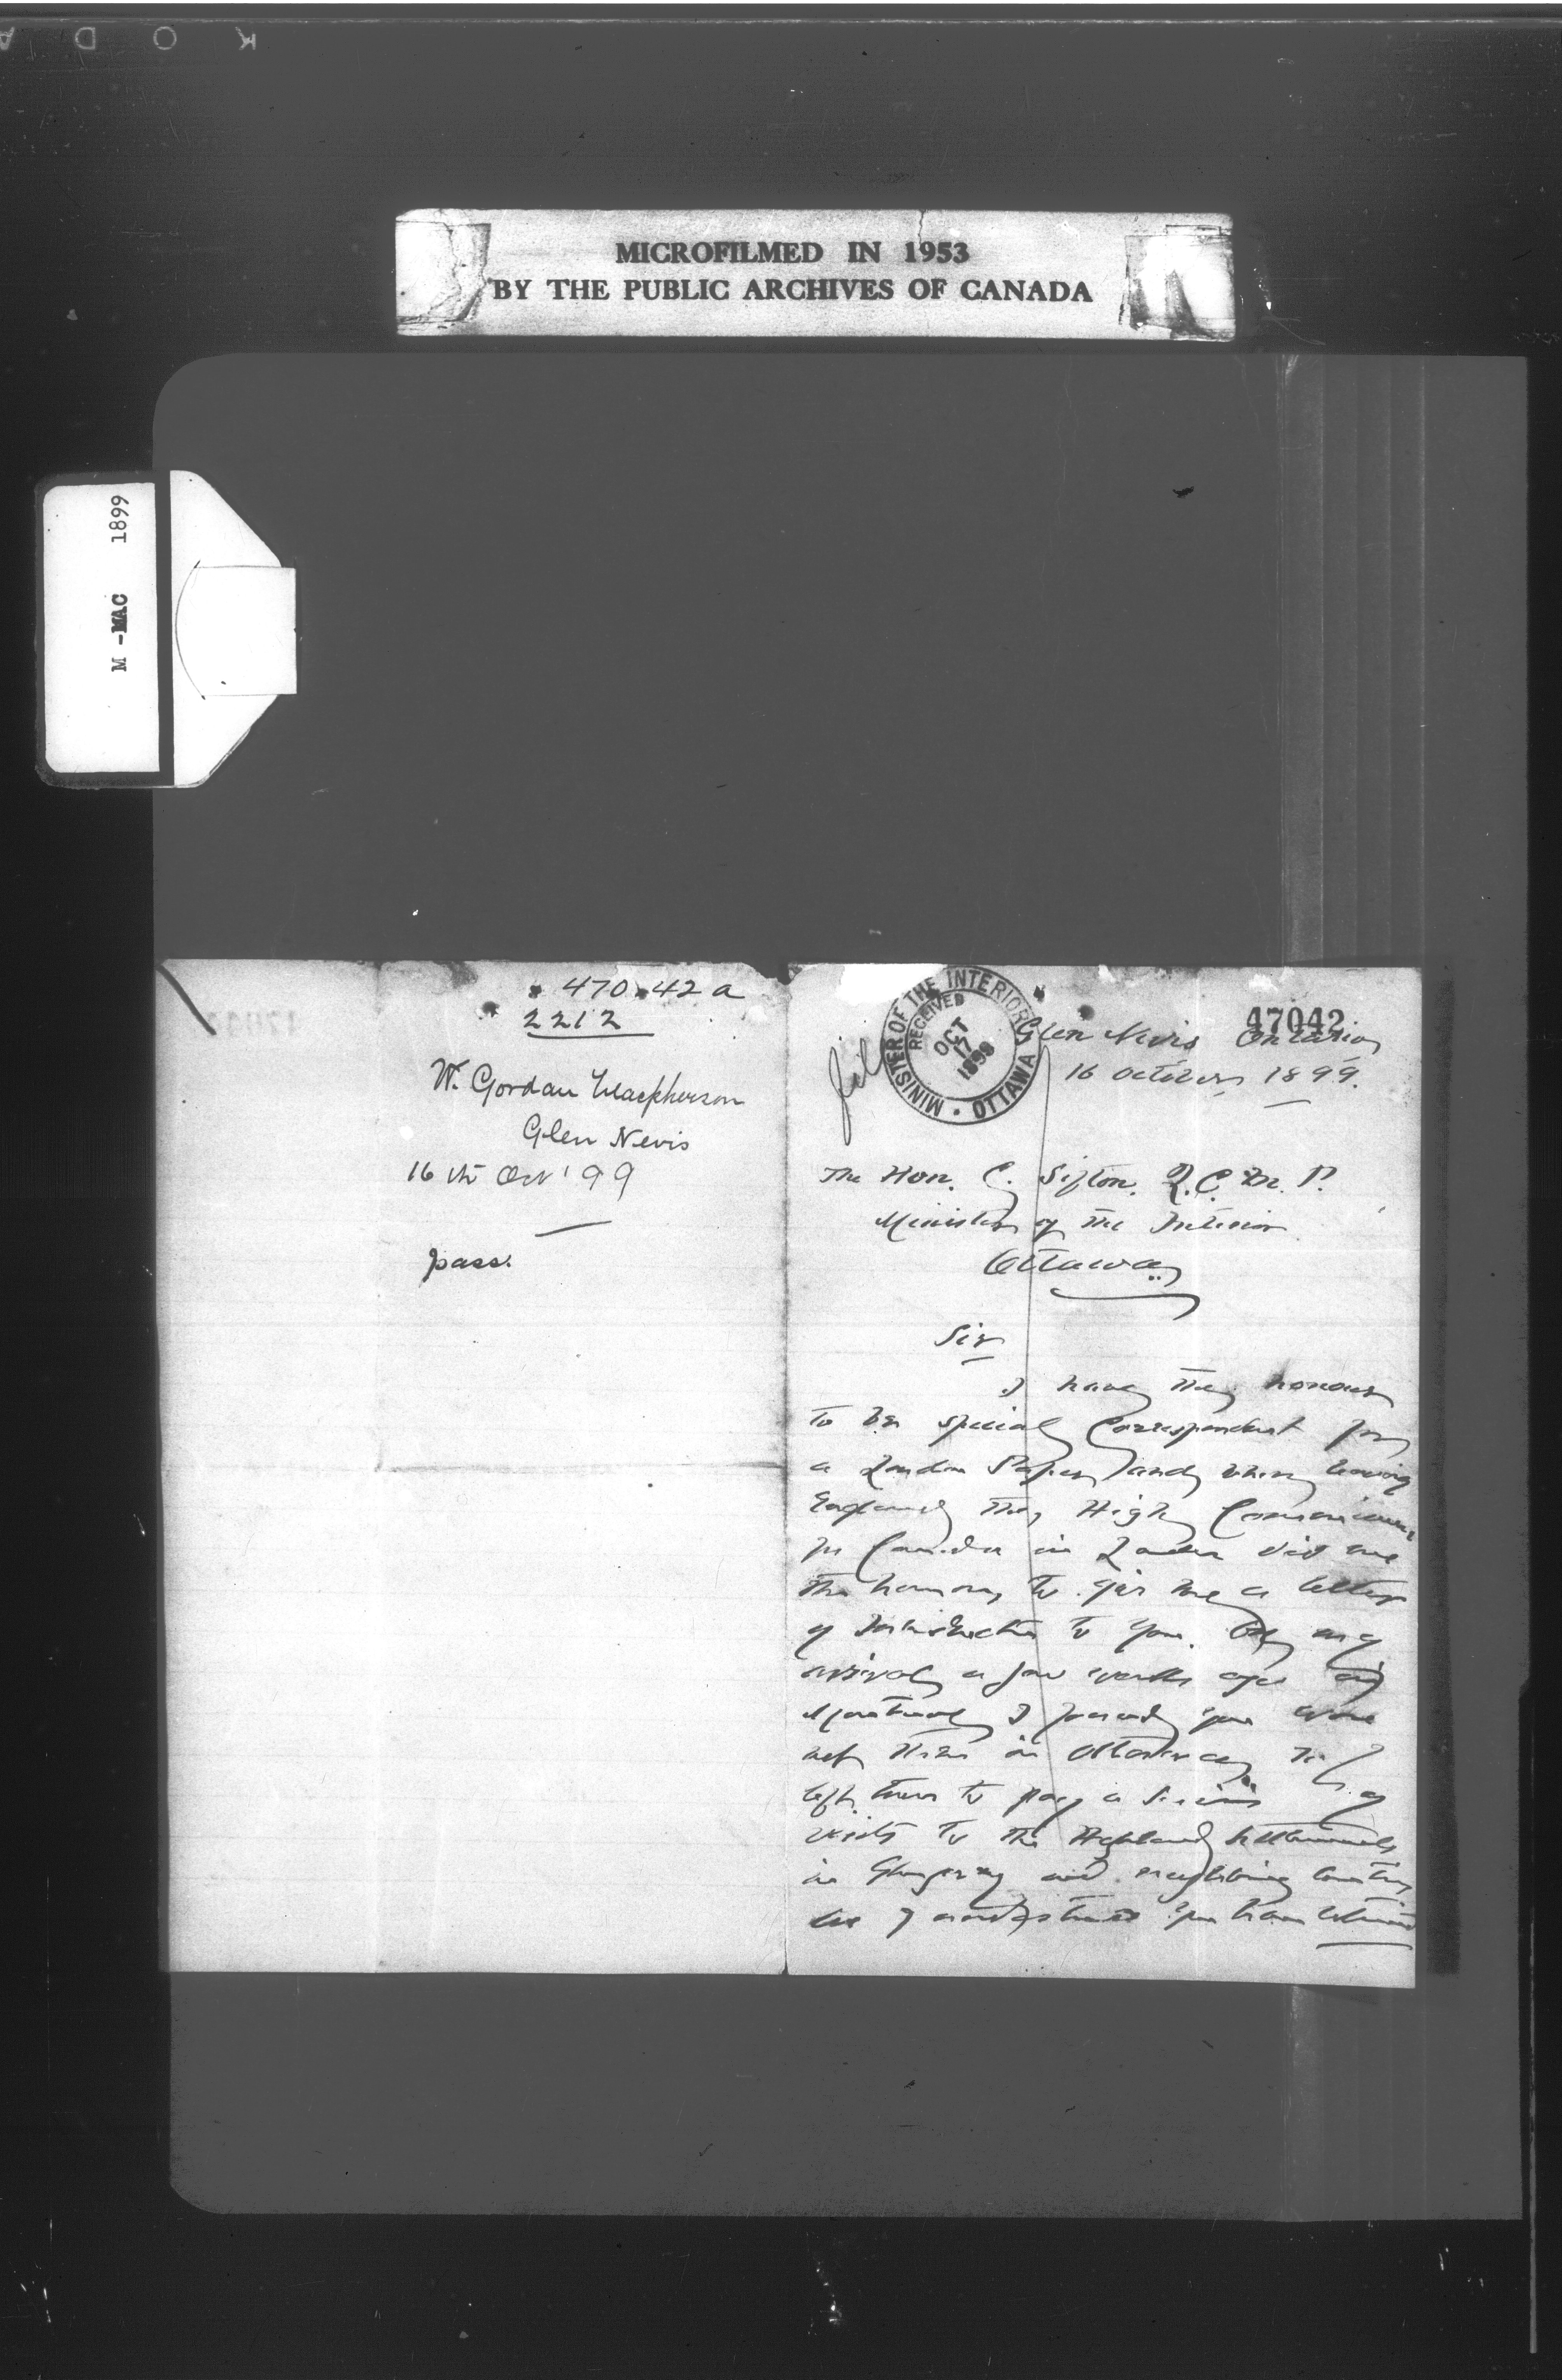 K O D A
MICROFILMED IN 1953
BY THE PUBLIC ARCHIVES OF CANADA
M - MAC 1899
470 42 a
2212
W. Gordon Macpherson
Glen Nevis
16th Oct '99
pass.
MINISTER OF THE INTERIOR
RECEIVED
OCT
17
1899
OTTAWA
file
47042
Glen Nevis Ontario
16 October 1899.
The Hon. C. Sifton. Q.C. M.P.
Minister of the Interior
Ottawa
Sir
I have the honour
to be special Correspondent for
a London Paper and when leaving
England the High Commissioner
for Canada in London did me
the honour to give me a letter
of Introduction to you. On my
arrival a few weeks ago in
Montreal I found you were
not then in Ottawa
left there to pay a series of
visits to the Highland Settlements
in Glengarry and neighbouring
I understand you have returned